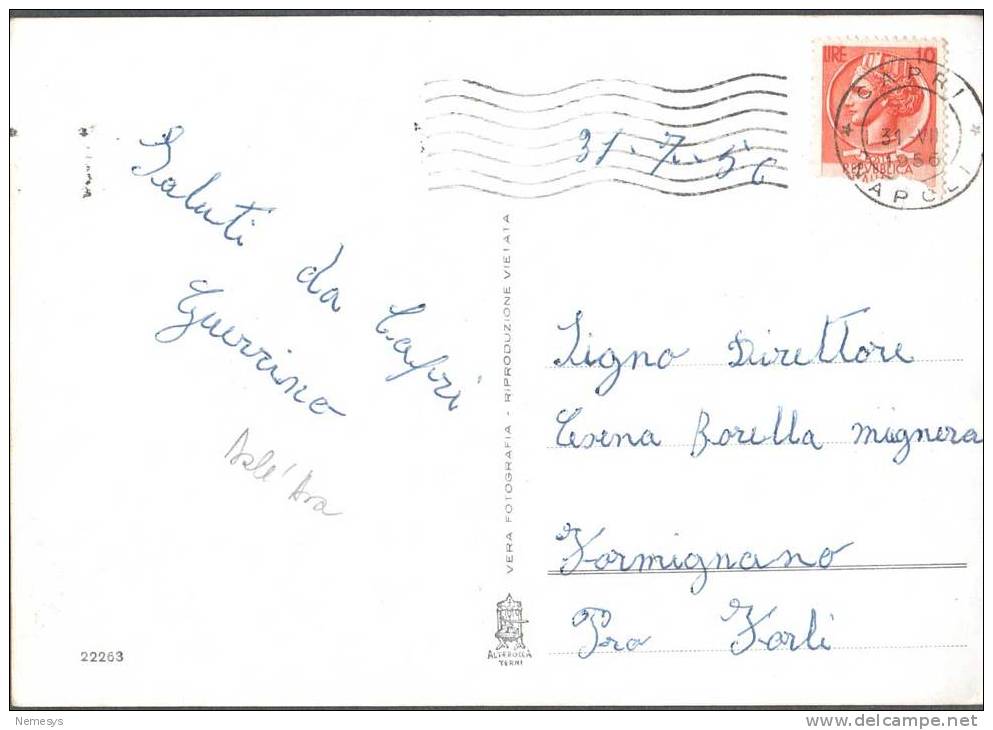 LIRE 10
REPVBBLICA
CAPRI
31-VII
1956
NAPOLI
31.7.56
Saluti da Capri
Guerrino
VERA FOTOGRAFIA - RIPRODUZIONE VIETATA
Signo Direttore
Cesena Borella mignera
Formignano
Pro Forlì
ALTEROCCA
TERNI
22263
Nemesys
www.delcampe.net